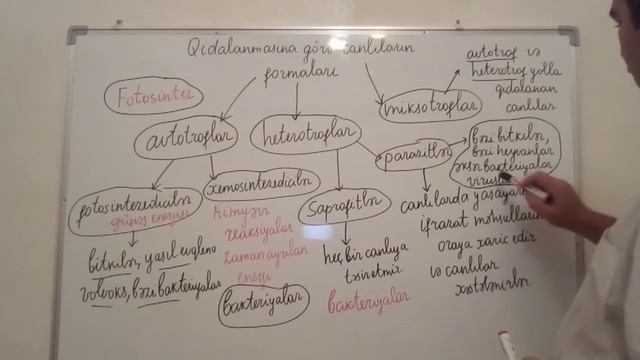 Qidalanmasına görə canlıların
formaları
avtotrof və
heterotrof yolla
qidalanan
canlılar
Fotosintez
avtotroflar
heterotroflar
miksotroflar
parazitlər
bəzi bitkilər,
bəzi heyvanlar
əksər bakteriyalar
viruslar
fotosintezedicilər
günəş enerjisi
bitkilər, yaşıl evqlena
volvoks, bəzi bakteriyalar
xemosintezedicilər
kimyəvi
reaksiyalar
zamanı ayrılan
enerji
bakteriyalar
Saprofitlər
heç bir canlıya
təsir etmir
bakteriyalar
canlılarda yaşayaraq
ifrazat məhsulların
oraya xaric edir
və canlılar
xəstələnirlər